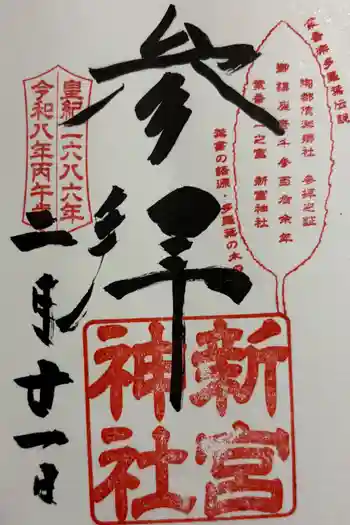 葉書源多羅葉伝説
陶都信楽郷社 参拝之証
御鎮座壱千参百拾余年
葉書之宮 新宮神社
葉書の語源・多羅葉の木の
参拝
皇紀二六八六年
令和八年丙午歳
二月廿一日
新宮
神社